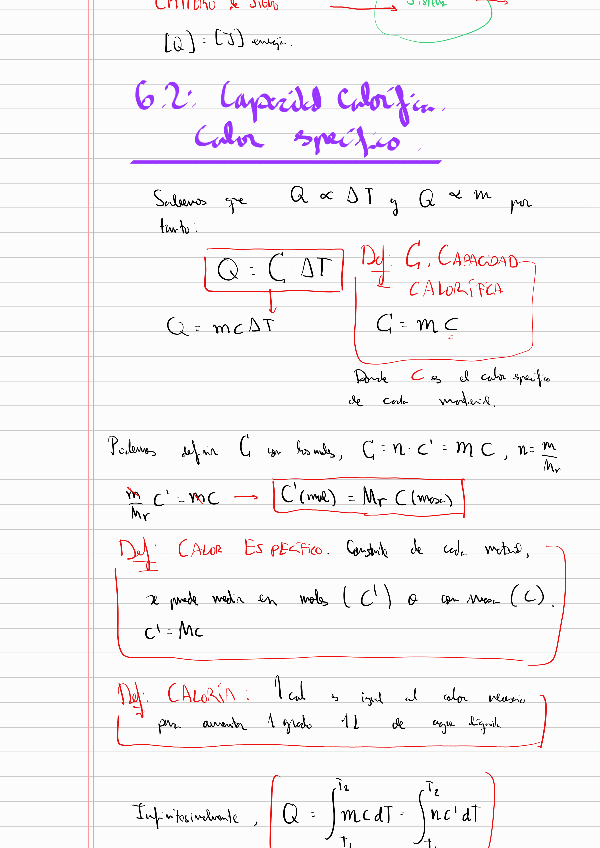 CANTIDAD de
Sistema
[Q] = [J] energía.
6.2: Capacidad Calorífica.
Calor específico.
Sabemos que Q ∝ ΔT y Q ∝ m por
tanto:
Q = C ΔT
Q = mcΔT
Def: C, CAPACIDAD
CALORÍFICA
C = m c
Donde c es el calor específico
de cada material.
Podemos definir C con los moles, C = n · c' = m c, n = m/Mr
m/Mr c' = mc → c'(mol) = Mr c(masa)
Def: CALOR ESPECÍFICO. Constante de cada material,
se puede medir en moles (c') o con masa (c).
c' = Mc
Def: CALORÍA: 1 cal es igual al calor necesario
para aumentar 1 grado 1L de agua líquida
Infinitesimalmente, Q = ∫_{T1}^{T2} mcdT = ∫_{T1}^{T2} nc'dT